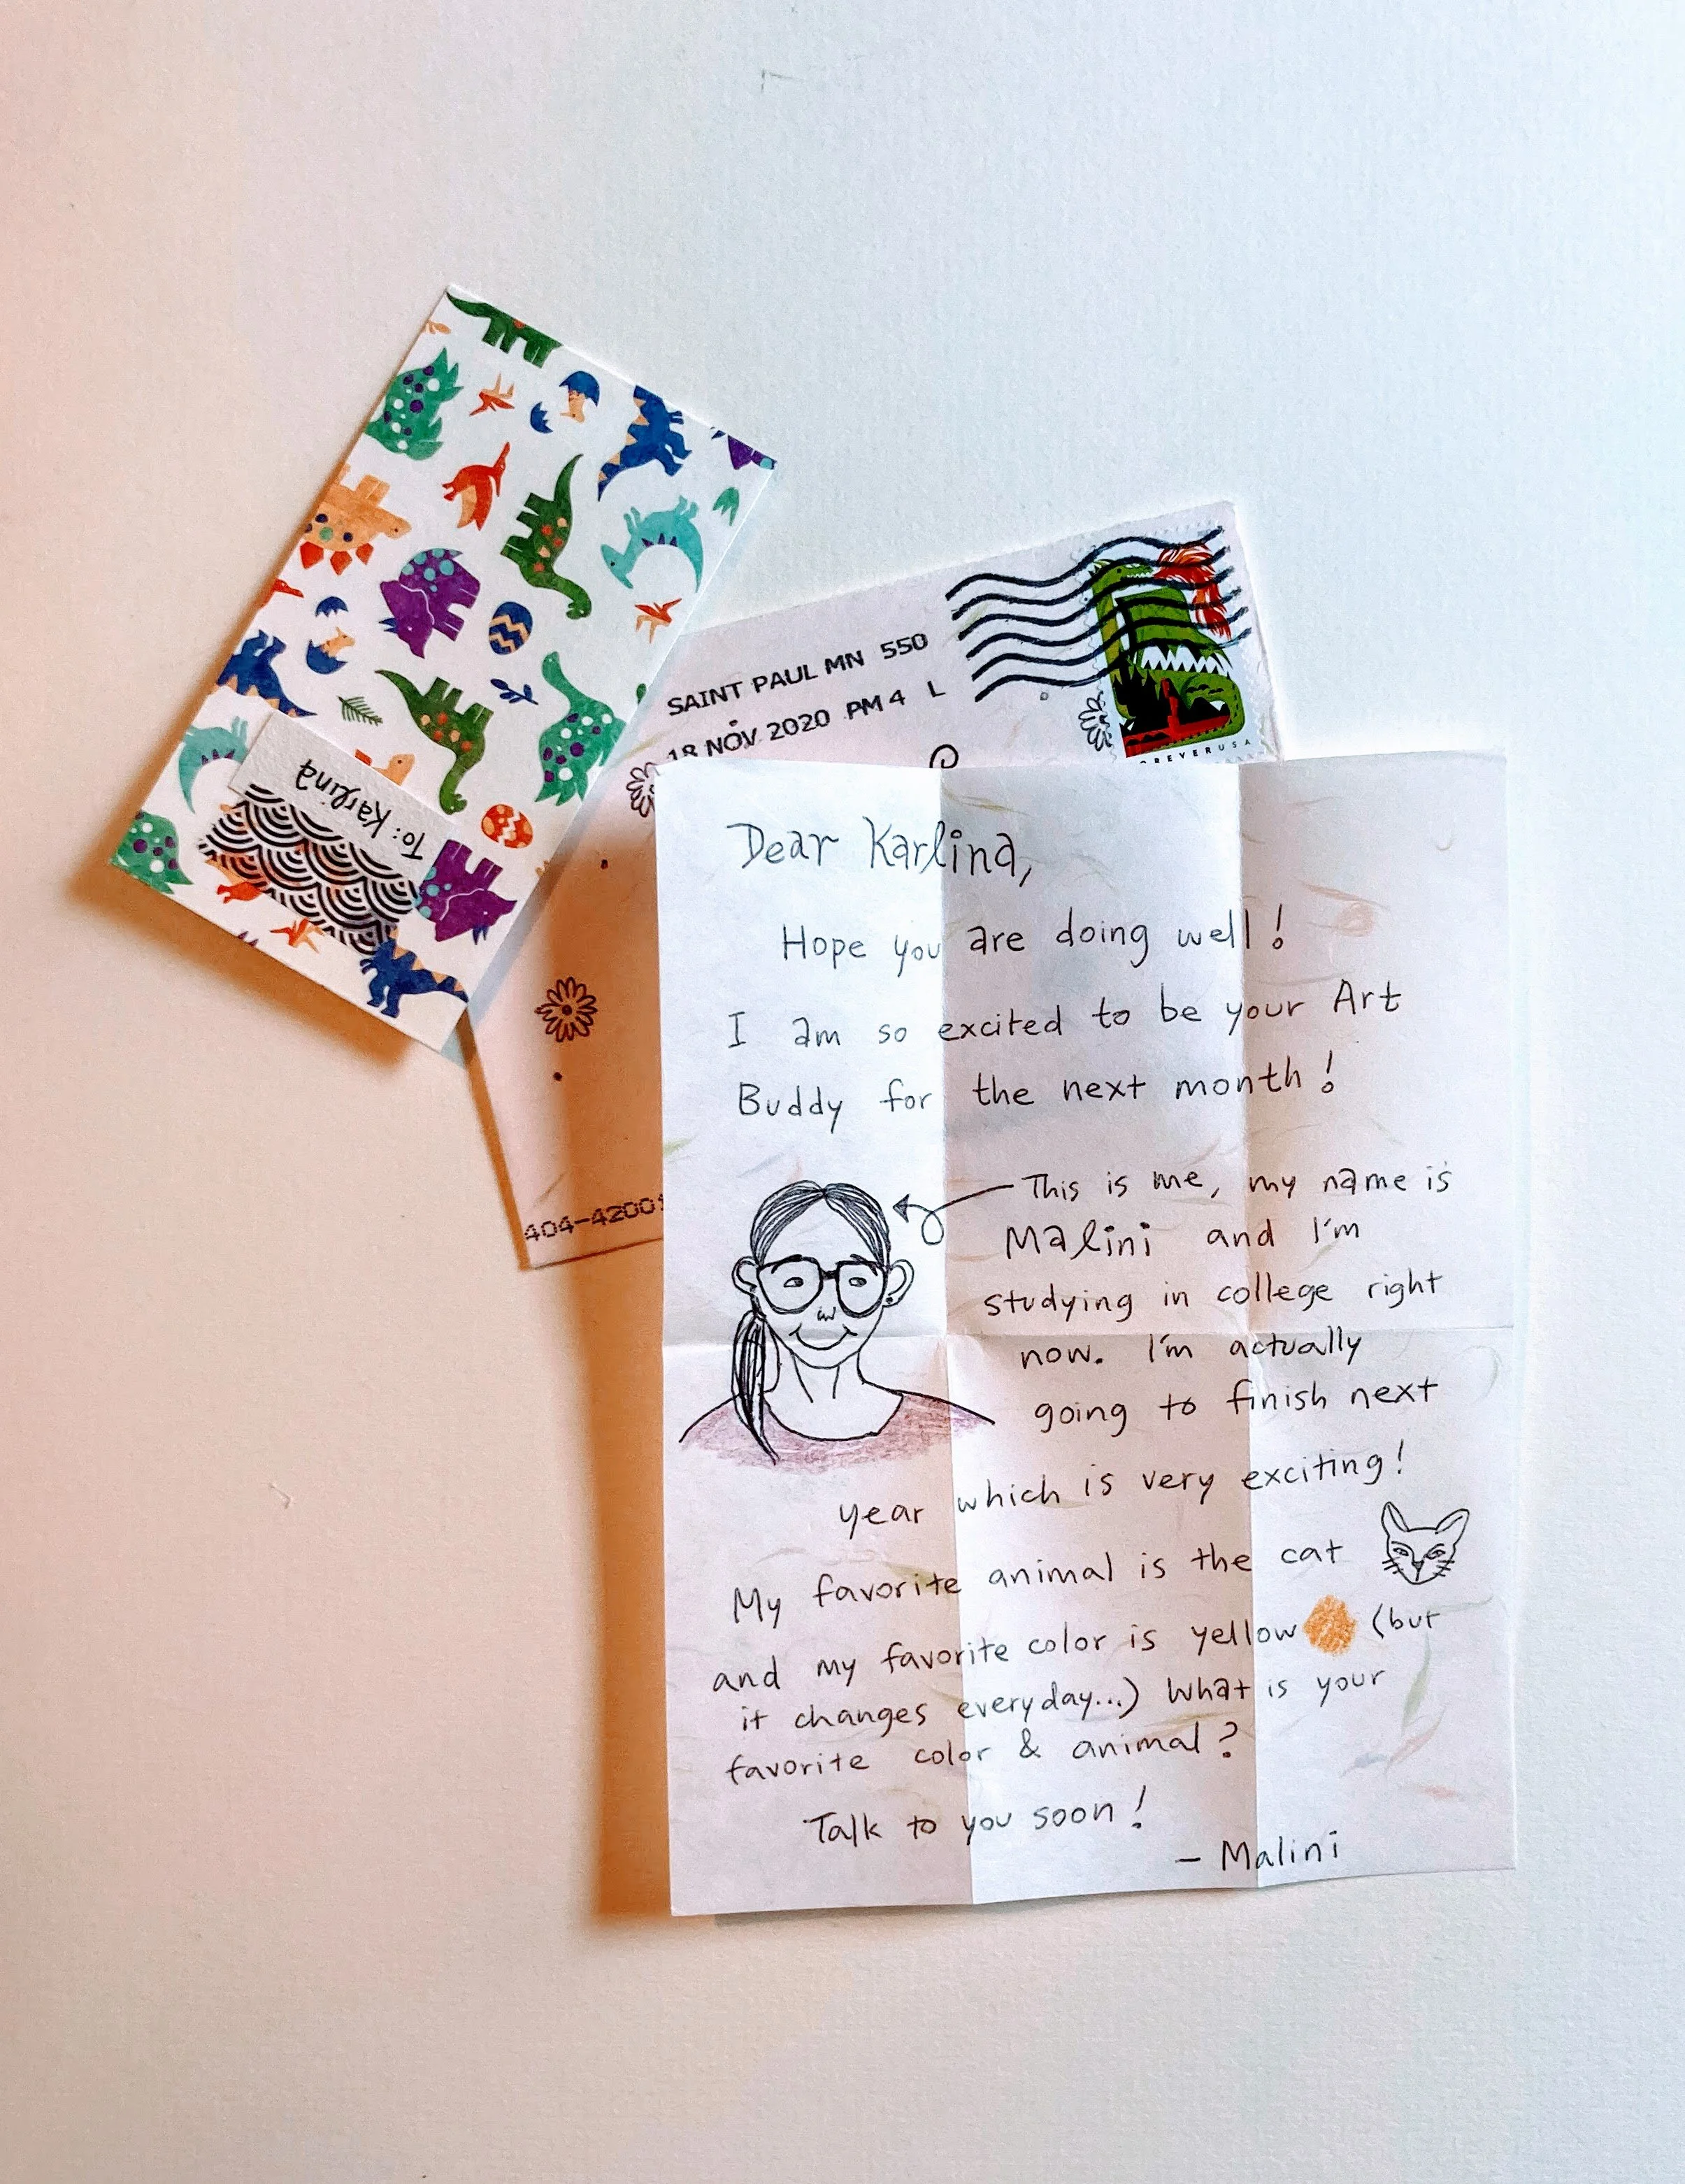 To: Karlina
SAINT PAUL MN 550
18 NOV 2020 PM 4 L
FOREVER USA
404-42001
Dear Karlina,
Hope you are doing well!
I am so excited to be your Art
Buddy for the next month!
This is me, my name is
Malini and I'm
studying in college right
now. I'm actually
going to finish next
year which is very exciting!
My favorite animal is the cat
and my favorite color is yellow (but
it changes everyday...) What is your
favorite color & animal?
Talk to you soon!
— Malini